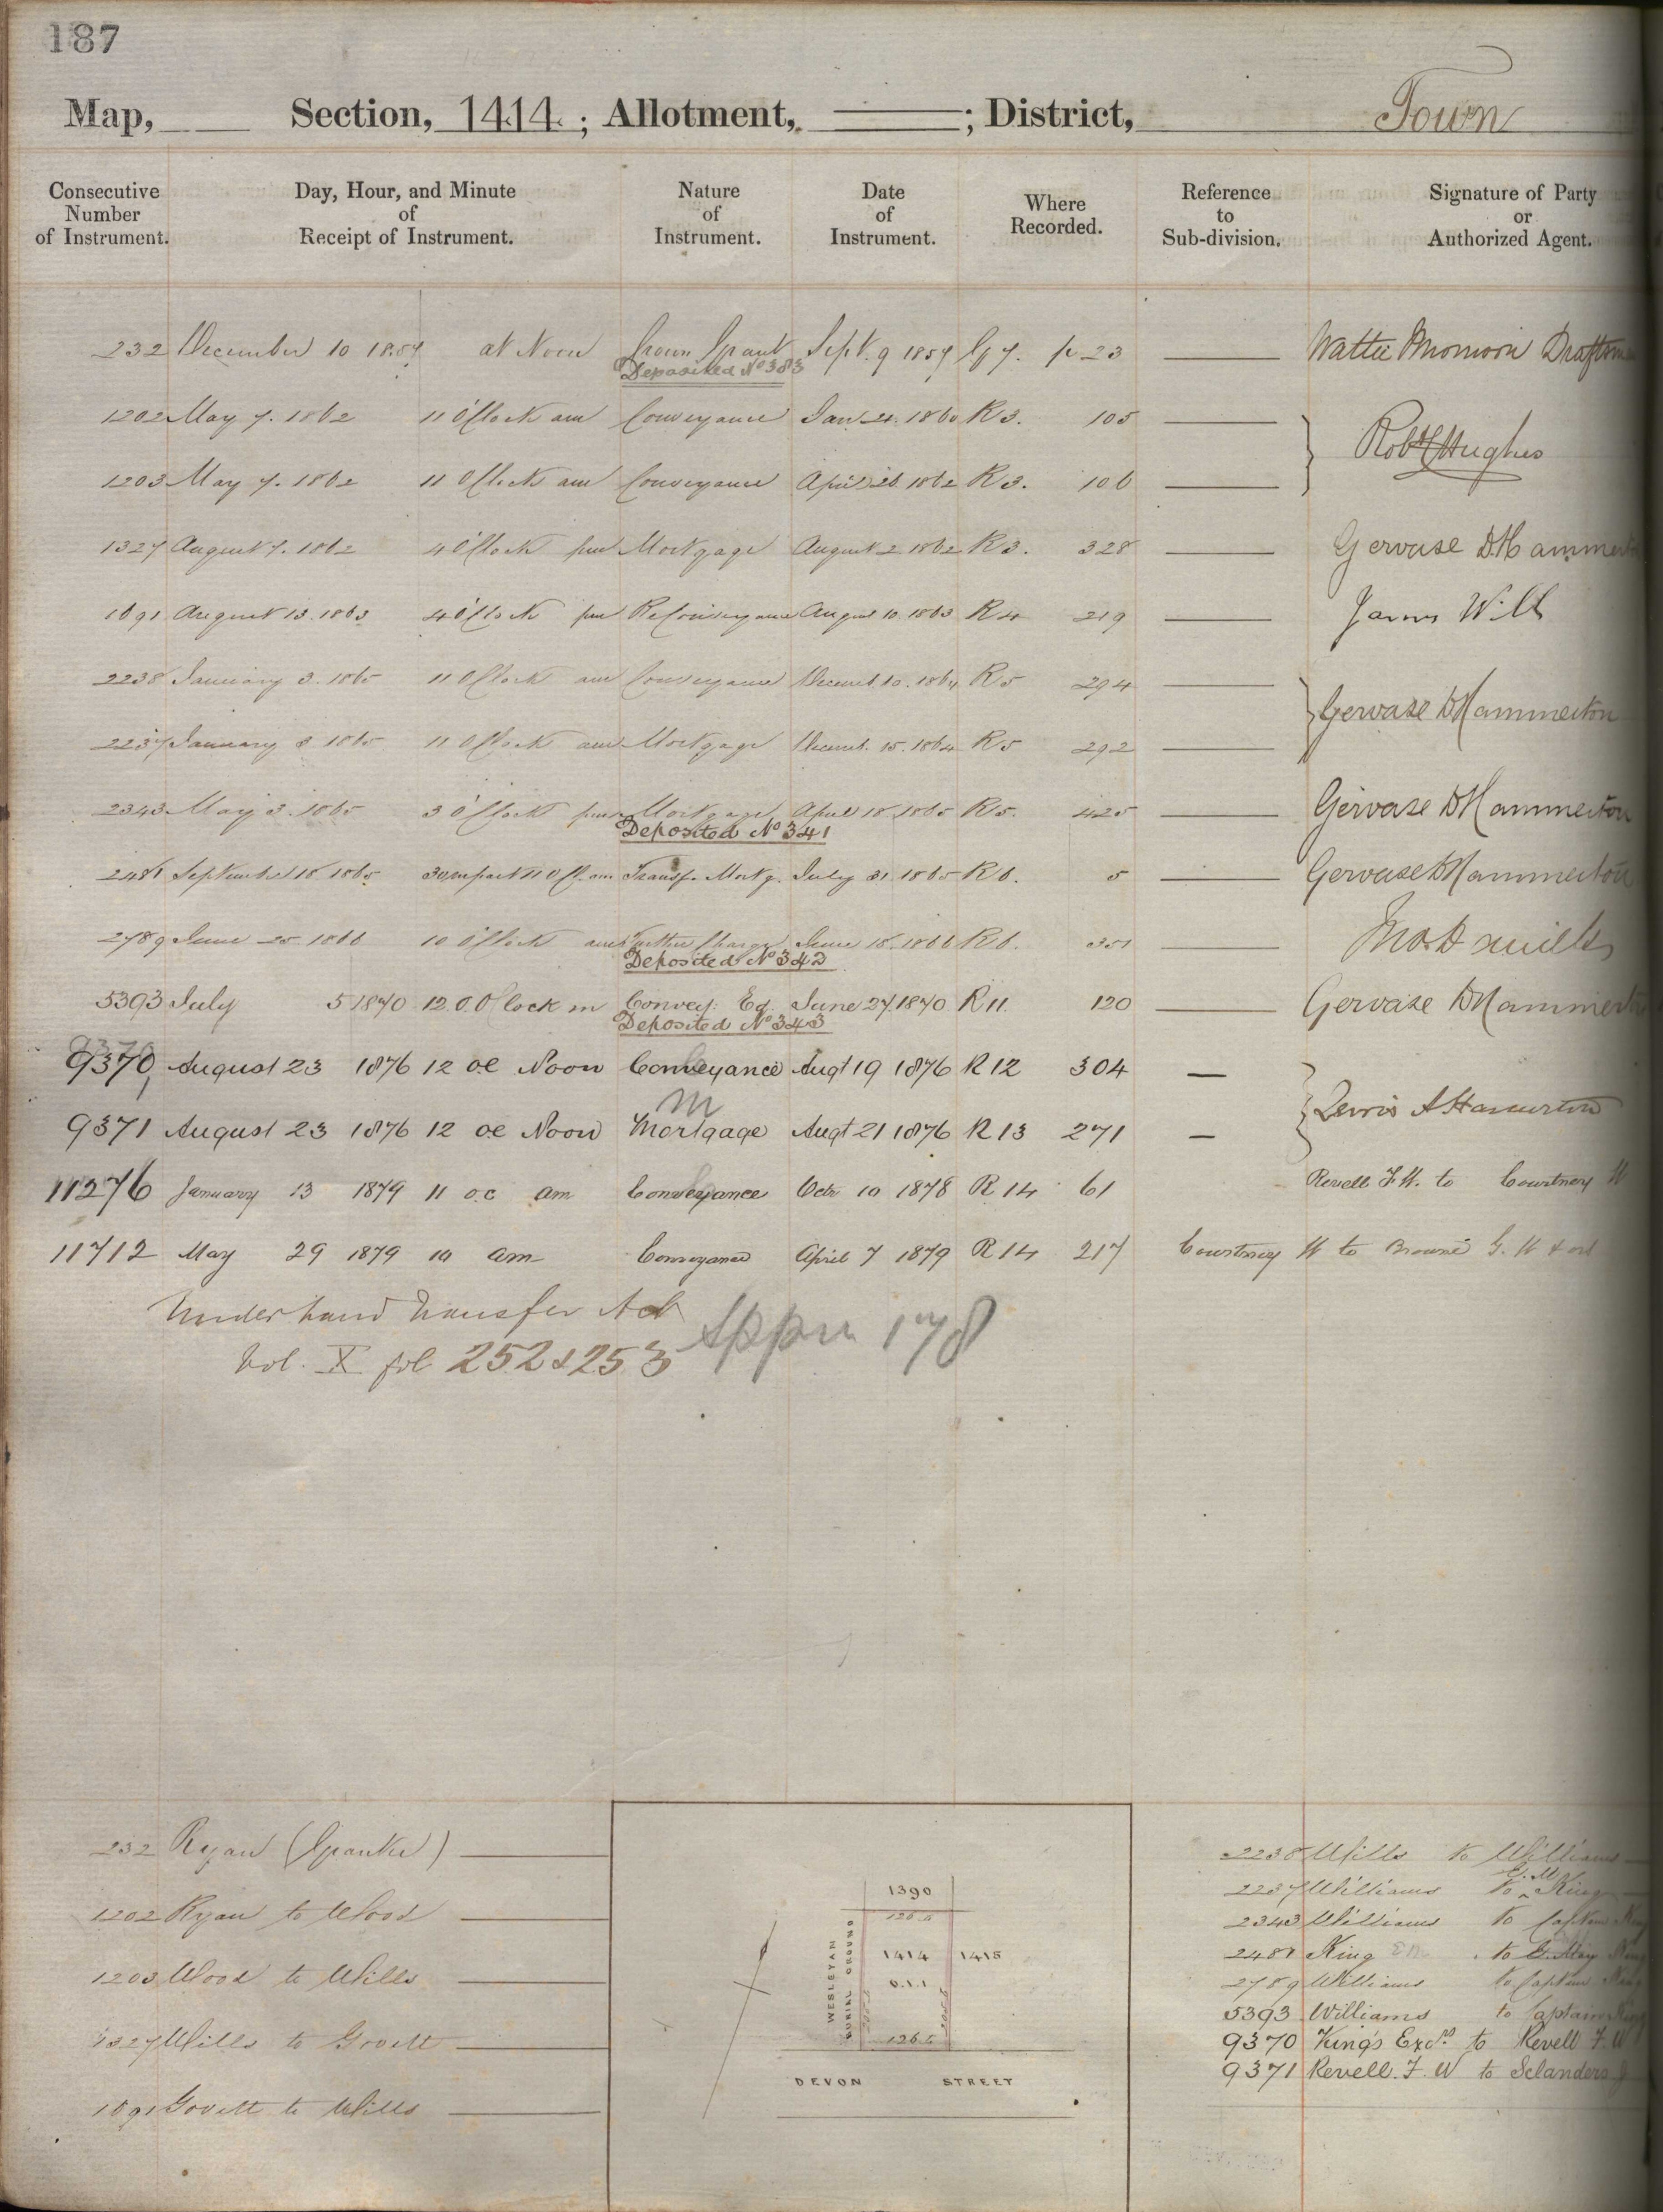 187
Map, Section, 1414. ; Allotment, ; District, Town
Consecutive Number of Instrument.
Day, Hour, and Minute of Receipt of Instrument.
Nature of Instrument.
Date of Instrument.
Where Recorded.
Reference to Sub-division.
Signature of Party or Authorized Agent.
232 December 10 1857 at Noon Crown Grant Sept. 9 1857 G 7. p 23
Deposited No 383
1202 May 7. 1862 11 O'Clock am Conveyance Jan 1860 R 3. 105 Hughes
1203 May 7. 1862 11 O'Clock am Conveyance April 26. 1862 R 3. 106
1327 August 7. 1862 4 O'Clock pm Mortgage August 2 1862 R 3. 328 Gervase D. Hammerton
1691 August 13. 1863 4 O'Clock pm ReConveyance August 10. 1863 R 4 219 James Wills
2238 January 3. 1865 11 O'Clock am Conveyance Decemb. 10. 1864 R 5 294 Gervase D Hammerton
2237 January 3 1865 11 O'Clock am Mortgage Decemb. 15. 1864 R 5 292
2343 May 3. 1865 3 O'Clock pm Mortgage April 18 1865 R 5. 425 Gervase D Hammerton
Deposited No 341
2481 September 18 1865 30 m past 11 O'Cl. am Transf. Mortg. July 31. 1865 R 6. 5 Gervase D Hammerton
2789 June 25 1866 10 O'Clock am Further Charge June 18. 1866 R 6. 351
Deposited No 342
5393 July 5 1870 12. O. O'Clock m Convey: Eq. June 27. 1870 R 11. 120 Gervase D Hammerton
Deposited No 343
9370 August 23 1876 12 oc Noon Conveyance Augt 19 1876 R 12 304
m
9371 August 23 1876 12 oc Noon Mortgage Augt 21 1876 R 13 271
11276 January 13 1879 11 o.c am Conveyance Octr 10 1878 R 14 61 Revell F. W. to Courtney W
11712 May 29 1879 10 am Conveyance April 7 1879 R 14 217 Courtney W to Browne G. W & anr
Under Land Transfer Act
Vol. X fol 252 & 253 Appn 178
232 Ryan (Grantee)
1202 Ryan to Wood
1203 Wood to Wills
1327 Wills to Govett
1691 Govett to Wills
1390
126.5
WESLEYAN
BURIAL GROUND
1414
1415
0.1.1
126.5
DEVON STREET
2238 Wills to Williams
2237 Williams to King
2343 Williams to Captain King
2481 King to
2789 Williams to Captain King
5393 Williams to Captain King
9370 King's Exors to Revell F. W
9371 Revell. F. W to Sclanders